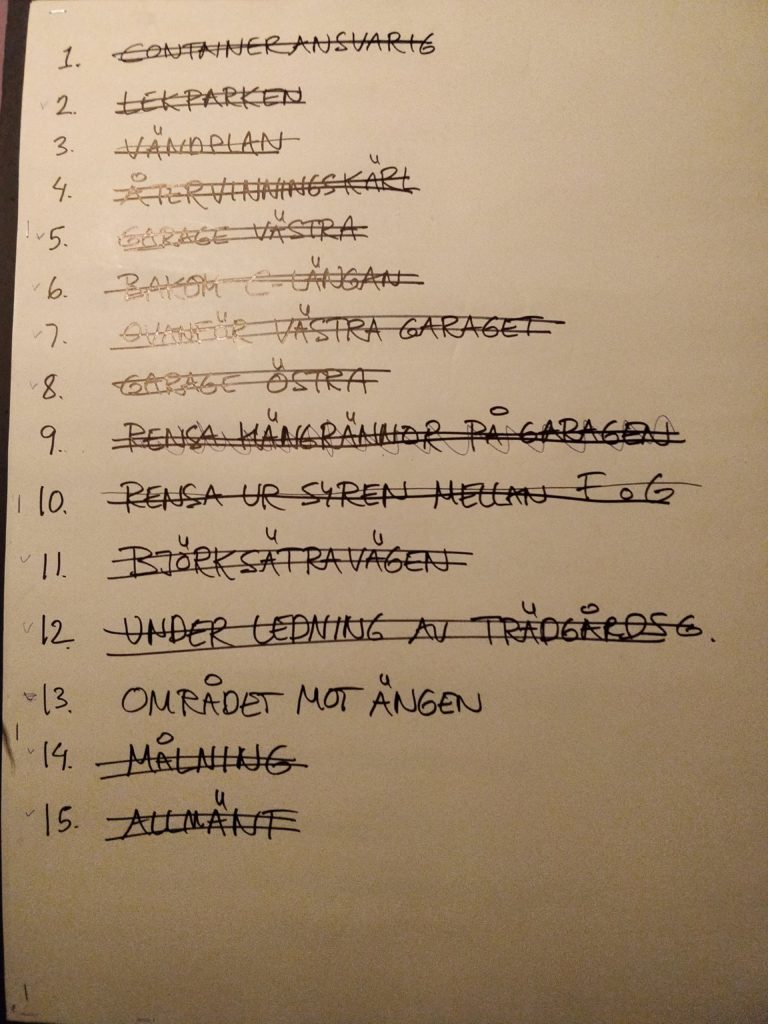 1. CONTAINERANSVARIG
2. LEKPARKEN
3. VÄNDPLAN
4. ÅTERVINNINGSKÄRL
5. GARAGE VÄSTRA
6. BAKOM C-LÄNGAN
7. OVANFÖR VÄSTRA GARAGET
8. GARAGE ÖSTRA
9. RENSA HÄNGRÄNNOR PÅ GARAGEN
10. RENSA UR SYREN MELLAN F o G
11. BJÖRKSÄTRAVÄGEN
12. UNDER LEDNING AV TRÄDGÅRDSG.
13. OMRÅDET MOT ÄNGEN
14. MÅLNING
15. ALLMÄNT